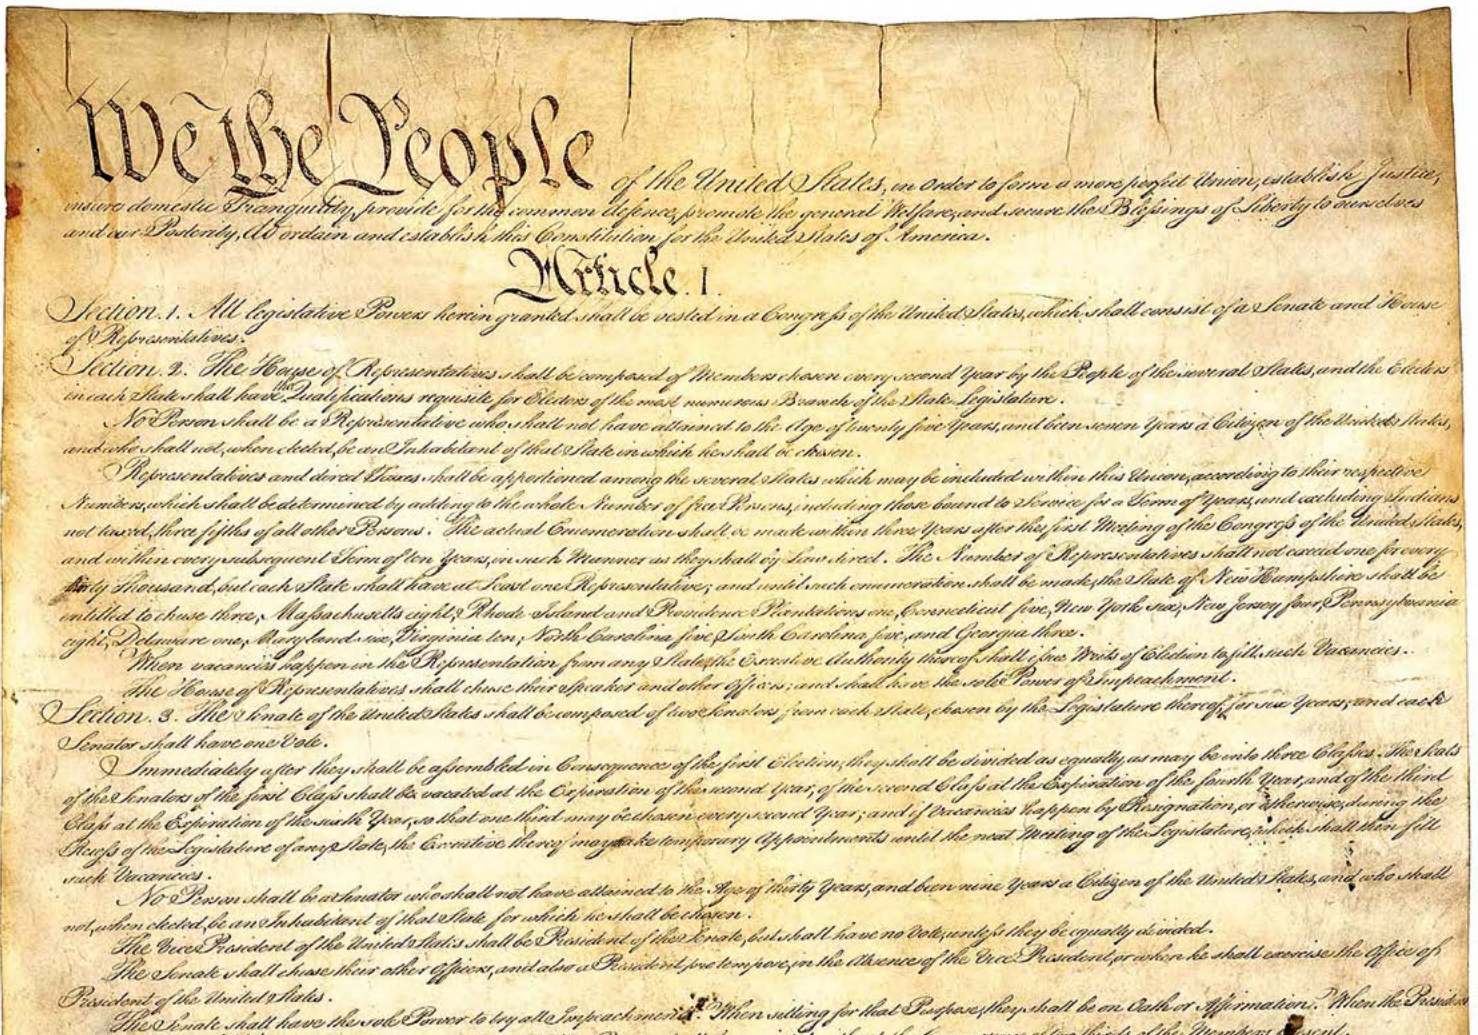 We the People of the United States, in Order to form a more perfect Union, establish Justice,
insure domestic Tranquility, provide for the common defence, promote the general Welfare, and secure the Blessings of Liberty to ourselves
and our Posterity, do ordain and establish this Constitution for the United States of America.
Article. I.
Section. 1. All legislative Powers herein granted shall be vested in a Congress of the United States, which shall consist of a Senate and House
of Representatives.
Section. 2. The House of Representatives shall be composed of Members chosen every second Year by the People of the several States, and the Electors
in each State shall have the Qualifications requisite for Electors of the most numerous Branch of the State Legislature.
No Person shall be a Representative who shall not have attained to the Age of twenty five Years, and been seven Years a Citizen of the United States,
and who shall not, when elected, be an Inhabitant of that State in which he shall be chosen.
Representatives and direct Taxes shall be apportioned among the several States which may be included within this Union, according to their respective
Numbers, which shall be determined by adding to the whole Number of free Persons, including those bound to Service for a Term of Years, and excluding Indians
not taxed, three fifths of all other Persons. The actual Enumeration shall be made within three Years after the first Meeting of the Congress of the United States,
and within every subsequent Term of ten Years, in such Manner as they shall by Law direct. The Number of Representatives shall not exceed one for every
thirty Thousand, but each State shall have at Least one Representative; and until such enumeration shall be made, the State of New Hampshire shall be
entitled to chuse three, Massachusetts eight, Rhode Island and Providence Plantations one, Connecticut five, New York six, New Jersey four, Pennsylvania
eight, Delaware one, Maryland six, Virginia ten, North Carolina five, South Carolina five, and Georgia three.
When vacancies happen in the Representation from any State, the Executive Authority thereof shall issue Writs of Election to fill such Vacancies.
The House of Representatives shall chuse their Speaker and other Officers; and shall have the sole Power of Impeachment.
Section. 3. The Senate of the United States shall be composed of two Senators from each State, chosen by the Legislature thereof, for six Years; and each
Senator shall have one Vote.
Immediately after they shall be assembled in Consequence of the first Election, they shall be divided as equally as may be into three Classes. The Seats
of the Senators of the first Class shall be vacated at the Expiration of the second Year, of the second Class at the Expiration of the fourth Year, and of the third
Class at the Expiration of the sixth Year, so that one third may be chosen every second Year; and if Vacancies happen by Resignation, or otherwise, during the
Recess of the Legislature of any State, the Executive thereof may make temporary Appointments until the next Meeting of the Legislature, which shall then fill
such Vacancies.
No Person shall be a Senator who shall not have attained to the Age of thirty Years, and been nine Years a Citizen of the United States, and who shall
not, when elected, be an Inhabitant of that State for which he shall be chosen.
The Vice President of the United States shall be President of the Senate, but shall have no Vote, unless they be equally divided.
The Senate shall chuse their other Officers, and also a President pro tempore, in the Absence of the Vice President, or when he shall exercise the Office of
President of the United States.
The Senate shall have the sole Power to try all Impeachments. When sitting for that Purpose, they shall be on Oath or Affirmation. When the President
two thirds of the Members present.